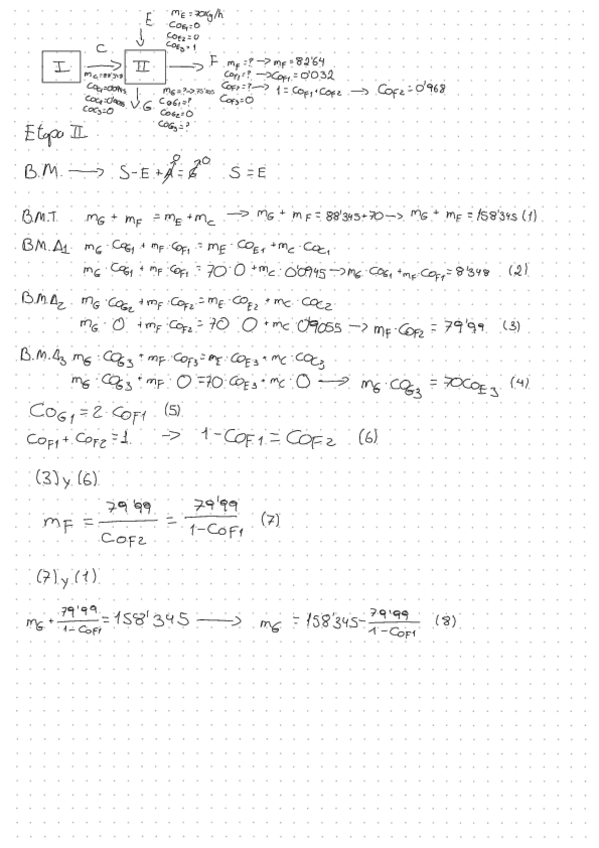 E
mE = 70Kg/h
COE1 = 0
COE2 = 0
COE3 = 1
I
C
II
F
mF = ? → mF = 82'64
COF1 = ? → COF1 = 0'032
COF2 = ? → 1 = COF1 + COF2 → COF2 = 0'968
COF3 = 0
COC3 = 0
G
COG1 = ?
COG2 = 0
COG3 = ?
Etapa II
B.M. → S-E + A = G S = E
0 0
B.M.T. mG + mF = mE + mC → mG + mF = 88'345 + 70 → mG + mF = 158'345 (1)
B.M.A1 mG · COG1 + mF · COF1 = mE · COE1 + mC · COC1
mG · COG1 + mF · COF1 = 70 · 0 + mC · 0'0945 → mG · COG1 + mF · COF1 = 8'348 (2)
B.M.A2 mG · COG2 + mF · COF2 = mE · COE2 + mC · COC2
mG · 0 + mF · COF2 = 70 0 + mC · 0'9055 → mF · COF2 = 79'99 (3)
B.M.A3 mG · COG3 + mF · COF3 = mE · COE3 + mC · COC3
mG · COG3 + mF · 0 = 70 · COE3 + mC · 0 → mG · COG3 = 70COE3 (4)
COG1 = 2 · COF1 (5)
COF1 + COF2 = 1 → 1 - COF1 = COF2 (6)
(3) y (6)
mF = 79'99 / COF2 = 79'99 / 1-COF1 (7)
(7) y (1)
mG + 79'99 / 1-COF1 = 158'345 → mG = 158'345 - 79'99 / 1-COF1 (8)